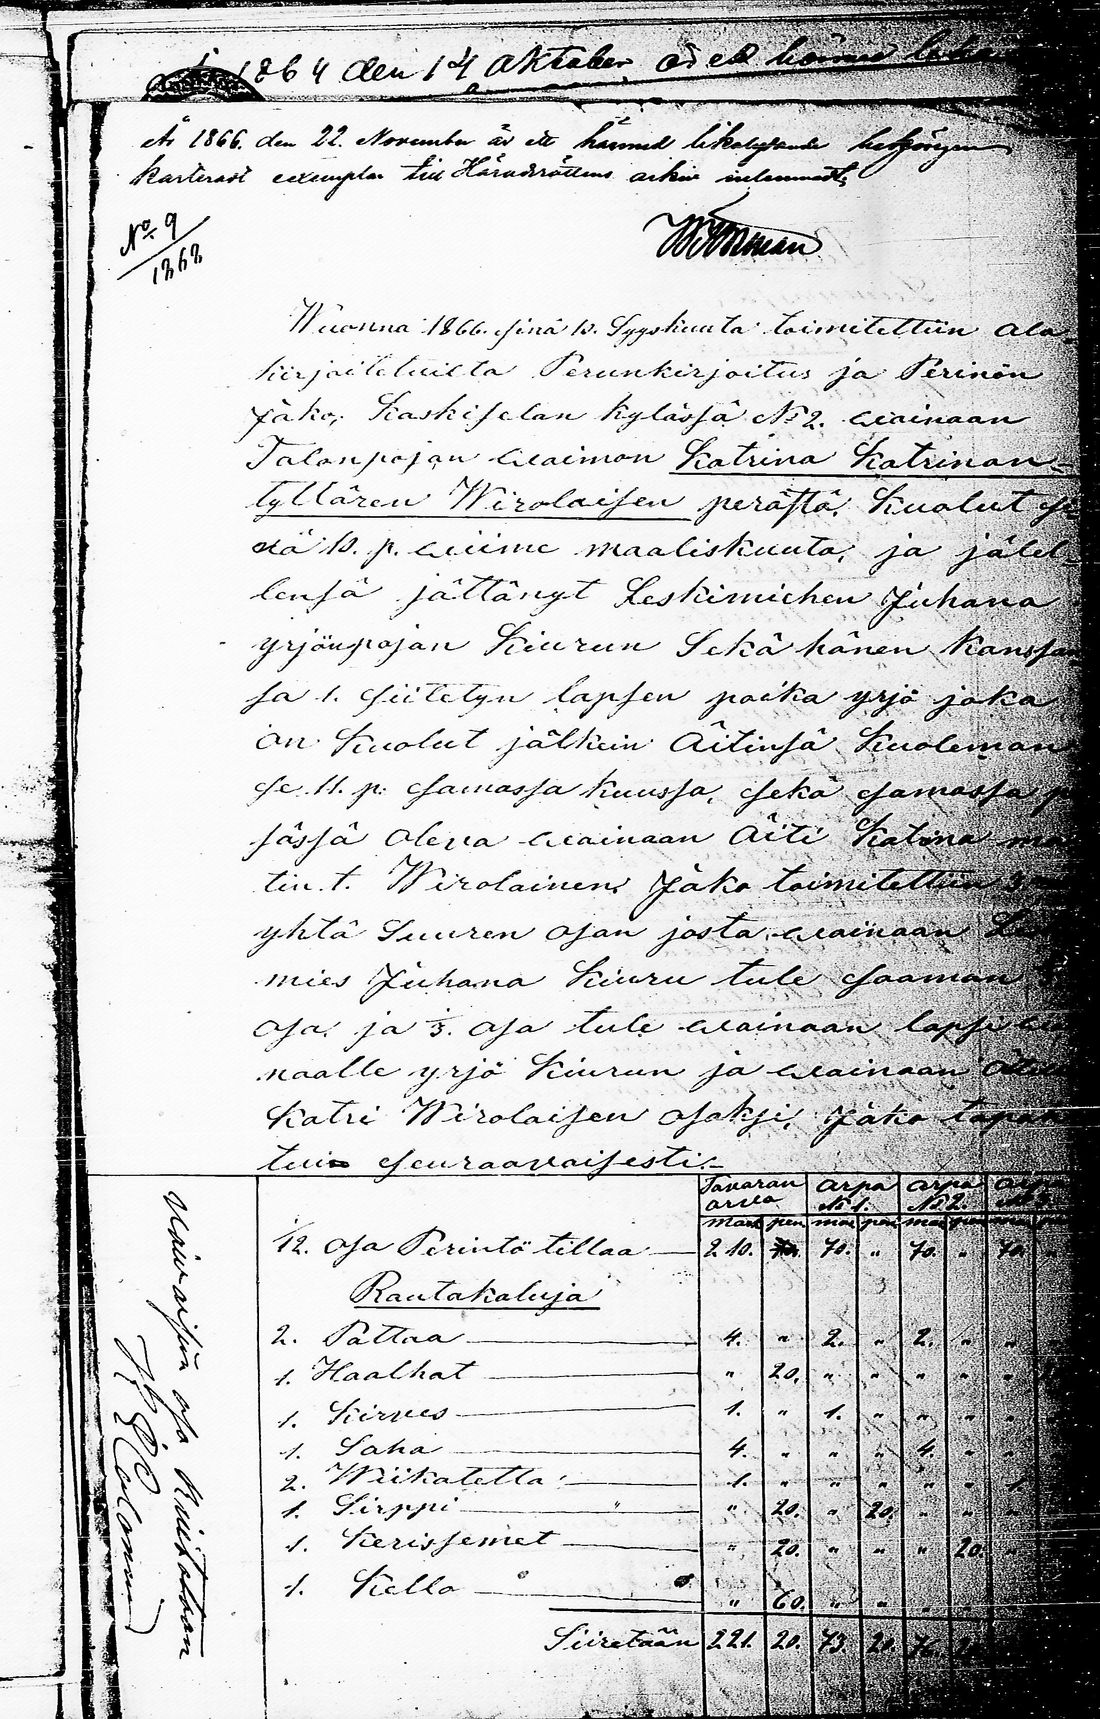 1864 den 14 Oktober är ett härmed
År 1866. den 22. November är ett härmed likalydande behörigen
karteradt exemplar till Häradsrättens arkiv inlemnadt;
No 9
1868
Wuonna 1866. sinä 10. Syyskuuta toimitettiin Ala-
kirjoitetuilta Perunkirjoitus ja Perinön
Jako, Kaskiselan kylässä No 2. wainaan
Talonpojan waimon Katrina Katrinan-
tyttären Wirolaisen perästä. Kuolut si-
nä 10. p. wiime maaliskuuta, ja jälel-
lensä jättänyt Leskimiehen Juhana
yrjönpojan Kiurun Sekä hänen Kanssan
sa 1. siitetyn lapsen poika yrjö joka
on Kuolut jälkein Äitinsä Kuoleman
se. 11. p. samassa kuussa, sekä samassa
sässä olewa wainaan Äiti Katrina ma
tin.t. Wirolainen. Jako toimitettiin 3.
yhtä Suuren osan josta wainaan
mies Juhana Kiuru tule saaman
osa. ja 1/3. osa tule wainaan lapsi
naalle yrjö Kiurun ja wainaan
Katri Wirolaisen osaksi, Jako tapah
tui seuraavaisesti.
Tavaran arwo Arpa No 1. Arpa No 2. Arpa
mark pen mar pen mar pen
1/12. osa Perintö tillaa 210. 70. " 70. " 70.
Rautakaluja
2. Pattaa 4. " 2. " 2. " "
1. Haalhat " 20. " " " " "
1. Kirves 1. " 1. " " " "
1. Saha 4. " " " 4. " "
2. Wiikatetta 1. " " " " " 1.
1. Sirppi " " 20. " 20. " "
1. Kerissemet " 20. " " " 20. "
1. Kello " 60. " " "
Siiretään 221. 20. 73. 20. 76.